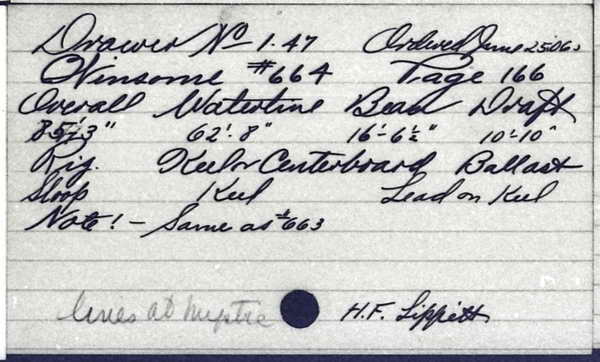 Drawer No 1.47 Ordered June 25.06
Winsome #664 Page 166
Overall Waterline Beam Draft
85'-3" 62'-8" 16'-6½" 10'-10"
Rig. Keel or Centerboard Ballast
Sloop Keel Lead on Keel
Note! - Same as #663
lines at Mystic H.F. Lippitt